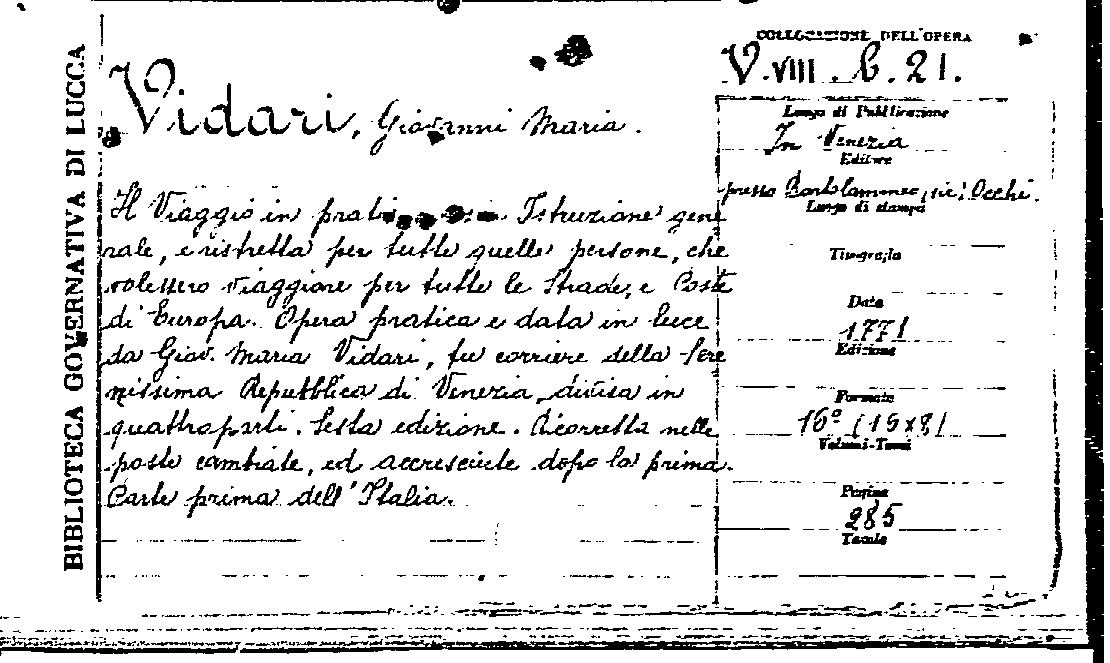 BIBLIOTECA GOVERNATIVA DI LUCCA
COLLOCAZIONE DELL'OPERA
V. VIII. b. 21.
Vidari, Giovanni Maria.
Il Viaggio in Istruzione gene
rale, e ristretta per tutte quelle persone, che
volessero viaggiare per tutte le Strade, e Poste
di Europa. Opera pratica e data in luce
da Giov. Maria Vidari, fu corriere della Sere
nissima Repubblica di Venezia, divisa in
quattro parti. Sesta edizione. Ricorretta nelle
poste cambiate, ed accresciute dopo la prima.
Parte prima dell'Italia.
Luogo di Pubblicazione
In Venezia
Editore
presso Bartolammeo (sic) Occhi.
Luogo di stampa
Tipografia
Data
1771
Edizione
Formato
16° (15x8)
Volumi-Tomi
Pagine
285
Tavole